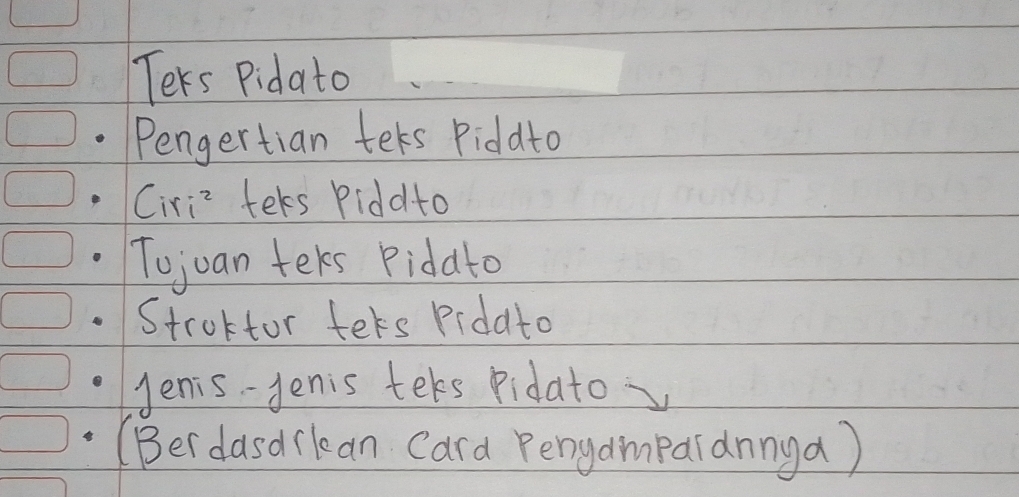 Teks Pidato
• Pengertian teks Pidato
• Ciri² teks Pidato
• Tujuan teks Pidato
• Struktur teks Pidato
• Jenis-Jenis teks Pidato ↘
• (Berdasarkan Cara Penyampaiannnya)